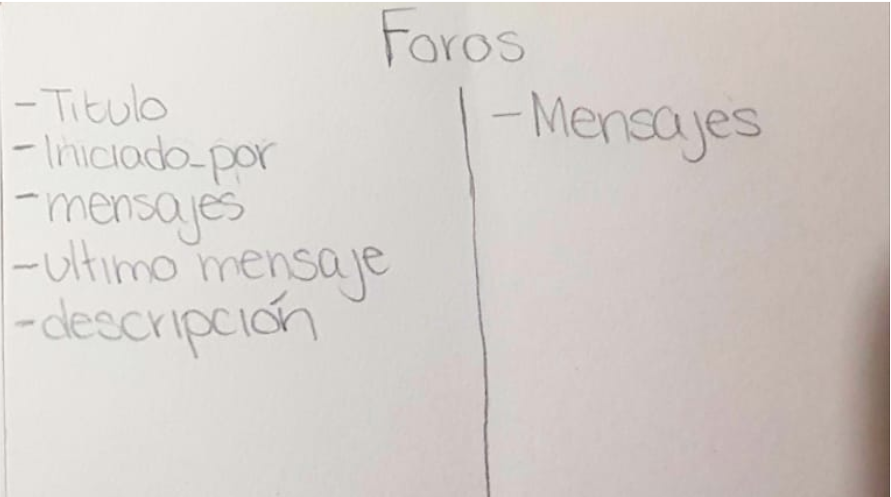 Foros
- Titulo
- Iniciado-por
- mensajes
- ultimo mensaje
- descripción
- Mensajes